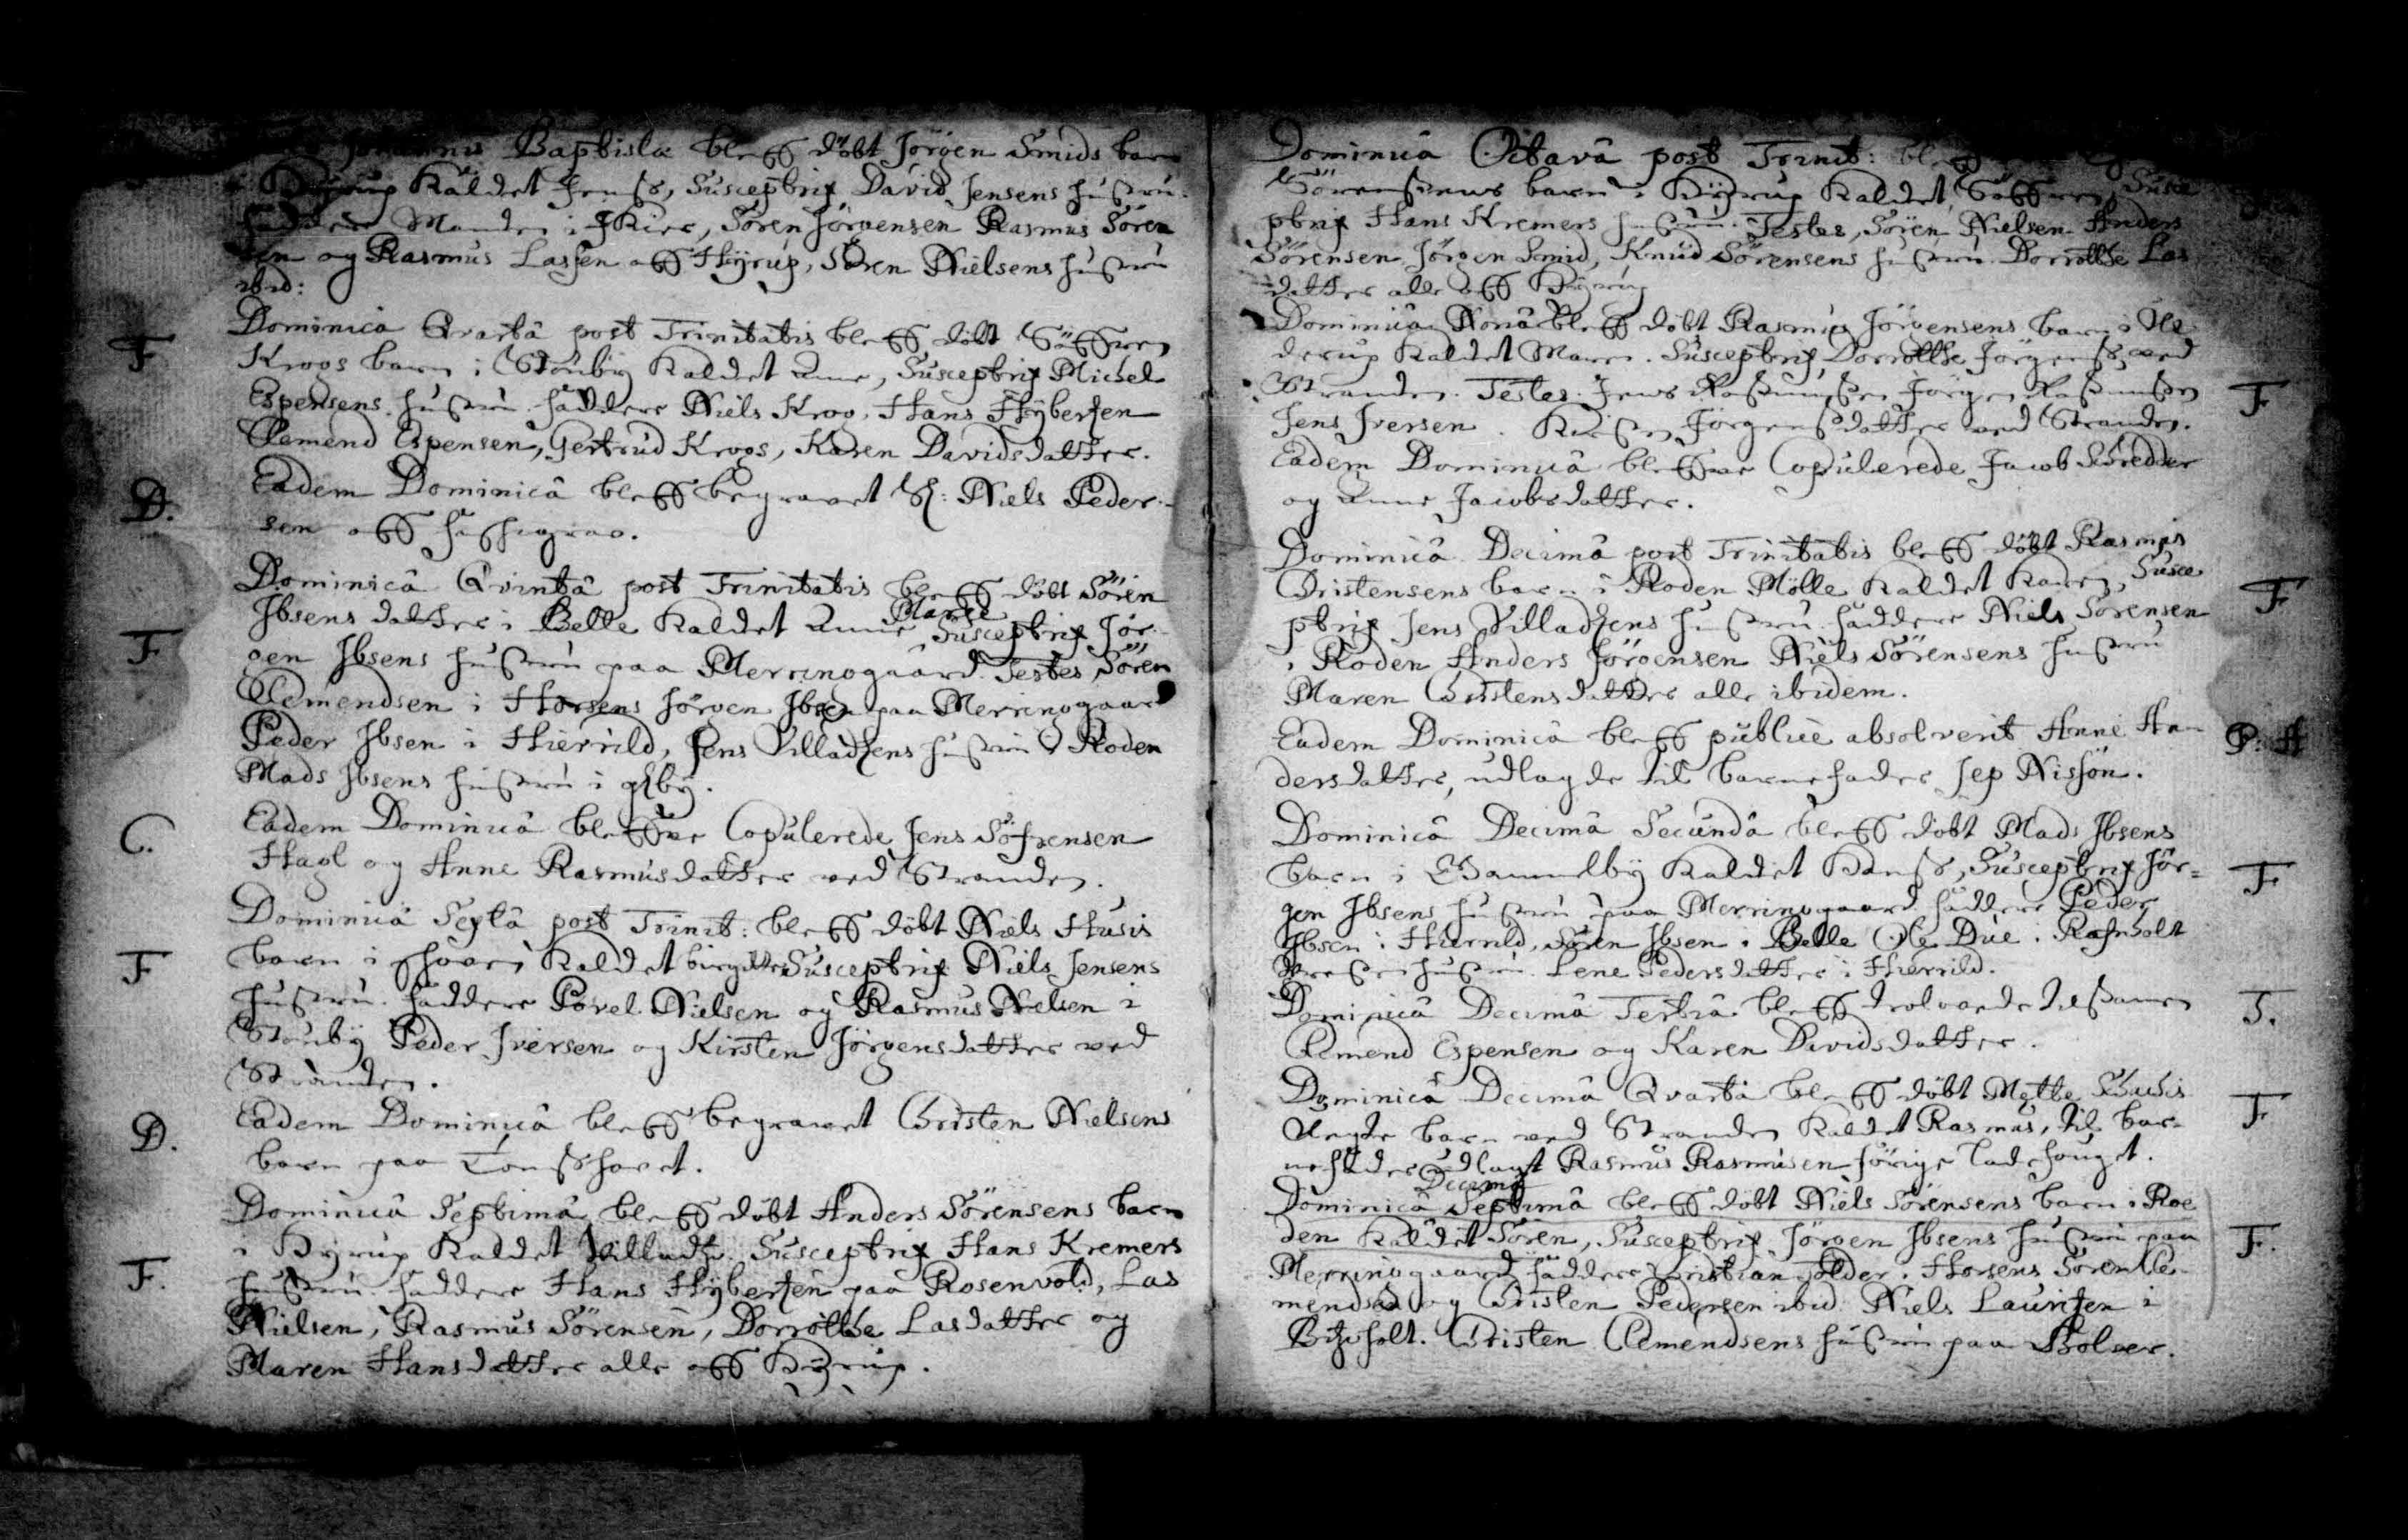 Johannis Baptistæ bleff döbt Jörgen Smids barn
i Hÿrup Kaldet Jenß, Susceptrix David Jensens hustru.
faddere Manden i Kier, Sören Jörgensen Rasmus Sören
sen og Rasmus Lassen aff Hÿrup, Sören Nielsens hustru
ibid:
F Dominica Qvartâ post Trinitatis bleff döbt Söffren
Krogs barn i Stoubÿ Kaldet Anne, Susceptrix Michel
Espensens hustru faddere Niels Krog, Hans Hÿbertsen
Clemend Espensen, Gertrud Krogs, Karen Davidsdatter.
D. Eadem Dominicâ bleff begravet Sl: Niels Peder-
sen aff
Dominicâ Qvintâ post Trinitatis bleff döbt Sören
F Ibsens datter i Belle Kaldet Anne Marie Susceptrix Jör-
gen Ibsens hustru paa Merringgaard. Testes, Sören
Clemendsen i Horsens Jörgen Ibsen paa Merringgaard
Peder Ibsen i Hierrild, Jens Villadsens hustru i Roden
Mads Ibsens hustru i glbÿ.
C. Eadem Dominicâ bleffve Copulerede Jens Söfrensen
Hagl og Anne Rasmusdatter ved Stranden.
Dominicâ Sextâ post Trinit: bleff döbt Niels Husis
F barn i Kaldet birgitte Susceptrix Niels Jensens
hustru. faddere Povel Nielsen og Rasmus Nielsen i
Stoubÿ Peder Iversen og Kirsten Jörgensdatter ved
Stranden.
D. Eadem Dominicâ bleff begravet Christen Nielsens
barn paa
Dominicâ Septimâ bleff döbt Anders Sörensens barn
i Hÿrup Kaldet Villadtz. Susceptrix Hans Kremers
F. hustru. faddere Hans Hÿbertsen paa Rosenvold, Las
Nielsen, Rasmus Sörensen, Dorrothe Lasdatter og
Maren Hansdatter alle aff Hÿrup.
Dominicâ Octavâ post Trinit: bleff
Sörensens barn i Hÿrup Kaldet Söffren, Susce
ptrix Hans Kremers hustru. Testes, Sören Nielsen Anders
Sörensen Jörgen Smid, Knud Sörensens hustru Dorrothe Las
datter alle aff Hÿrup
Dominicâ Nonâ bleff döbt Rasmus Jörgensens barn i
derup Kaldet Maren. Susceptrix, Dorrothe Jörgens ved
F Stranden. Testes. Jens Rasmussen Jörgen Rasmussen
Jens Iversen. Kirsten Jörgensdatter ved Stranden.
Eadem Dominicâ bleffve Copulerede Jacob
og Anne Jacobsdatter.
Dominicâ Decimâ post Trinitatis bleff döbt Rasmus
F Christensens barn i Roden Mölle Kaldet Karen, Susce
ptrix Jens Villadsens hustru. faddere Niels Sörensen
i Roden Anders Jörgensen Niels Sörensens hustru
Maren Christensdatter alle ibidem.
P: A Eadem Dominicâ bleff publicè absolverit Anne An
dersdatter, udlagde til barnefader Jep Nissön.
Dominicâ Decimâ Secundâ bleff döbt Mads Ibsens
F barn i Gammelbÿ Kaldet Hans, Susceptrix Jör=
gen Ibsens hustru paa Merringgaard faddere Peder
Ibsen i Hierrild, Sören Ibsen i Belle Ole Due i Rafnholt
hustru Lene Pedersdatter i Hierrild.
T. Dominicâ Decimâ Tertiâ bleff trolovede tilsamen
Clemend Espensen og Karen Davidsdatter.
F Dominicâ Decimâ Qvartâ bleff döbt Mette
Uegte barn ved Stranden Kaldet Rasmus, til bar-
nefader udlagt Rasmus Rasmussen
Dominicâ Decima Septimâ bleff döbt Niels Sörensens barn i Roe
F. den Kaldet Sören, Susceptrix Jörgen Ibsens hustru paa
Merringgaard faddere Christian Tolder i Horsens Sören Cle-
mendsen og Christen Pedersen ibid. Niels Lauritzen i
Bitzholt. Christen Clemendsens hustru paa Bolser.